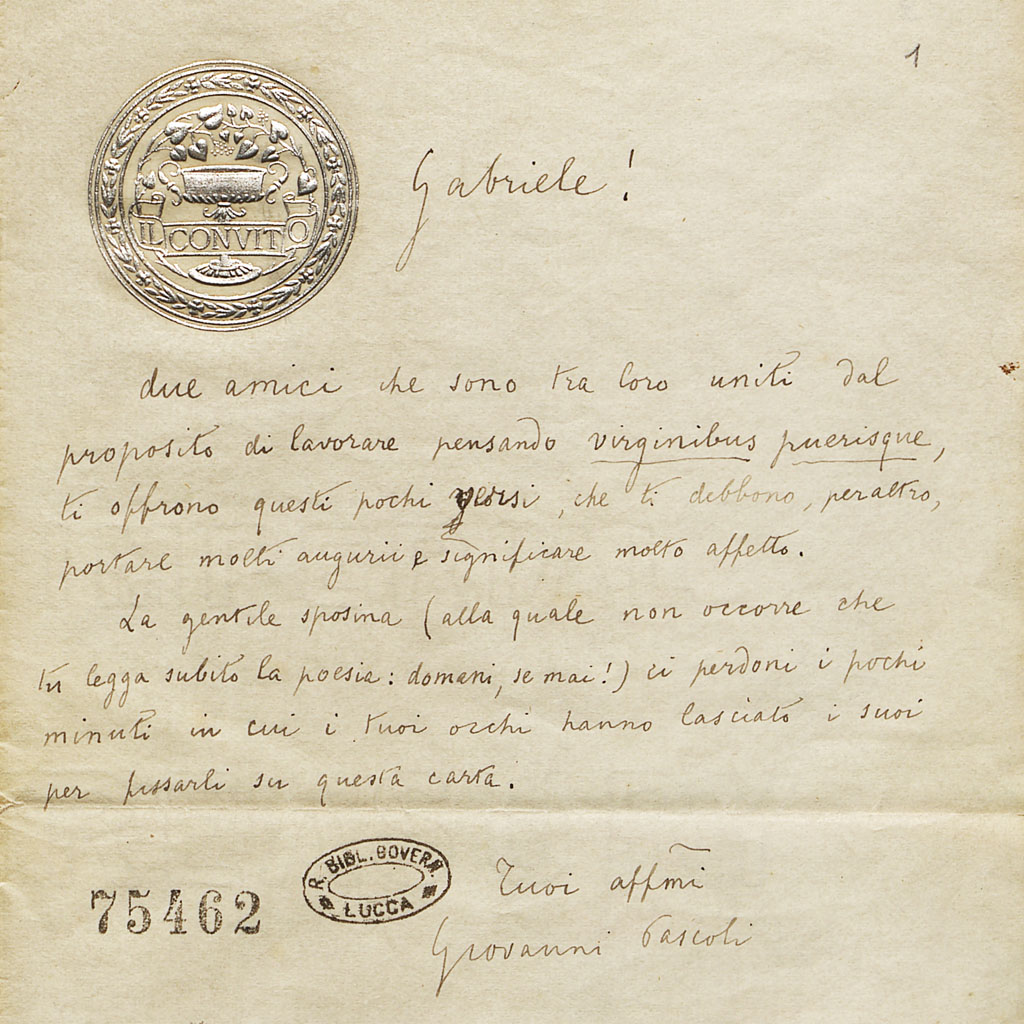 1
IL CONVITO
Gabriele!
due amici che sono tra loro uniti dal
proposito di lavorare pensando virginibus puerisque,
ti offrono questi pochi versi, che ti debbono, peraltro,
portare molti augurii e significare molto affetto.
La gentile sposina (alla quale non occorre che
tu legga subito la poesia: domani, se mai!) ci perdoni i pochi
minuti in cui i tuoi occhi hanno lasciato i suoi
per fissarli su questa carta.
R. BIBL. GOVERN.
LUCCA
75462
Tuoi affmi
Giovanni Pascoli